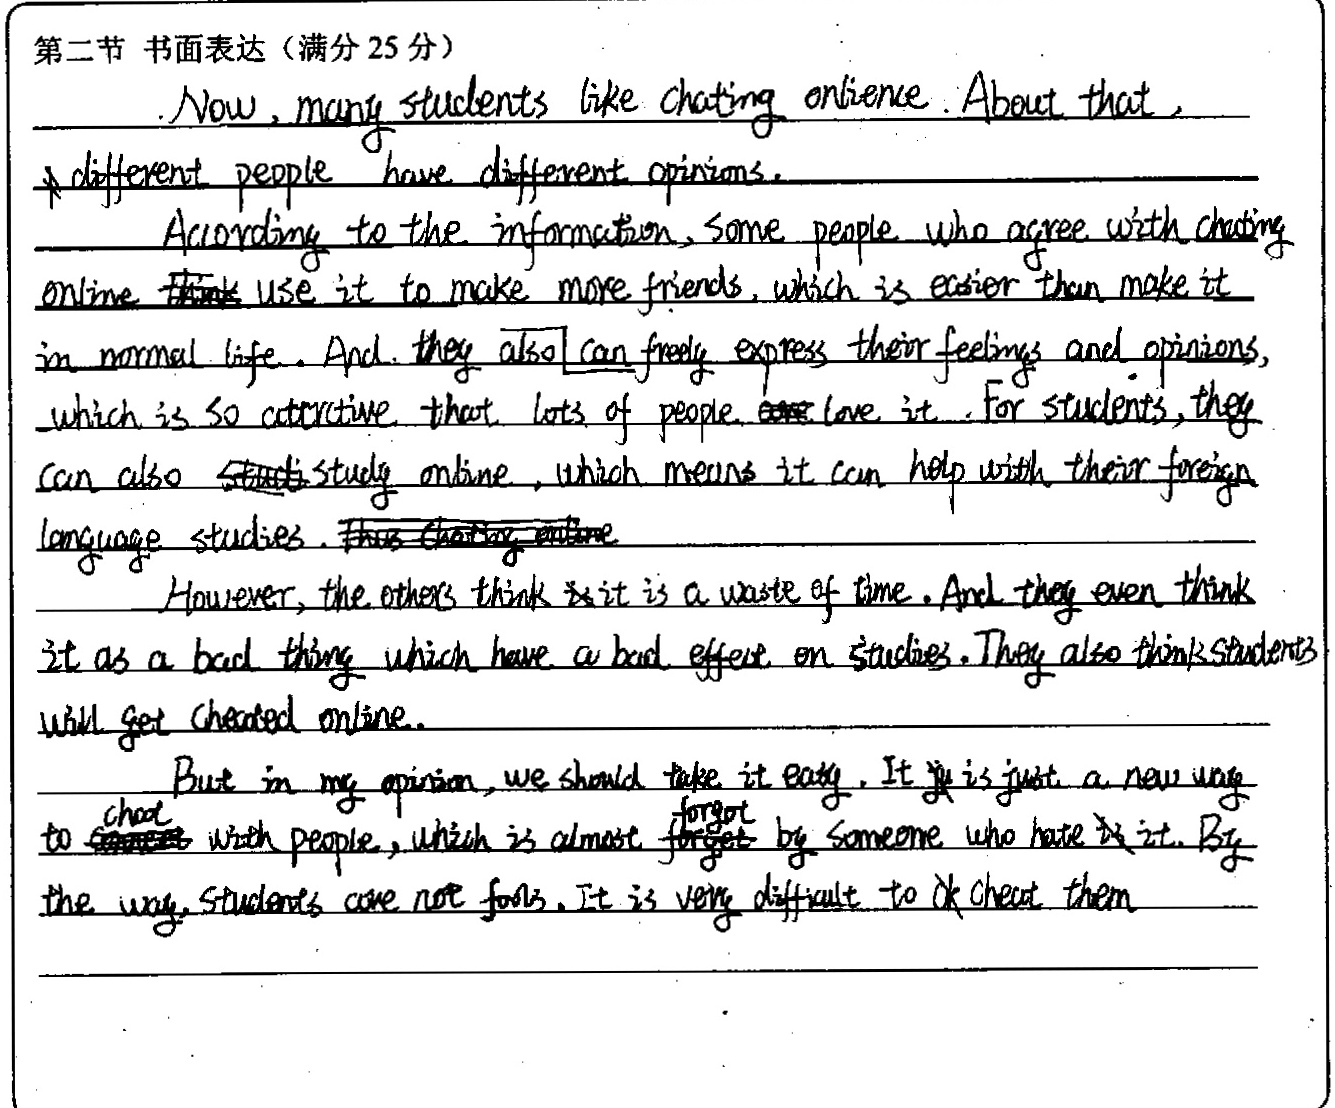 第二节 书面表达（满分 25 分）
Now, many students like chating onlience. About that,
different people have different opinions.
According to the information, some people who agree with chating
online use it to make more friends, which is easier than make it
in normal life. And they also can freely express their feelings and opinions,
which is so attractive that lots of people love it. For students, they
can also study online, which means it can help with their foreign
language studies.
However, the others think it is a waste of time. And they even think
it as a bad thing which have a bad effect on studies. They also think students
will get cheated online.
But in my opinion, we should take it easy. It is just a new way
to chat with people, which is almost forgot by someone who hate it. By
the way, students are not fools. It is very difficult to cheat them